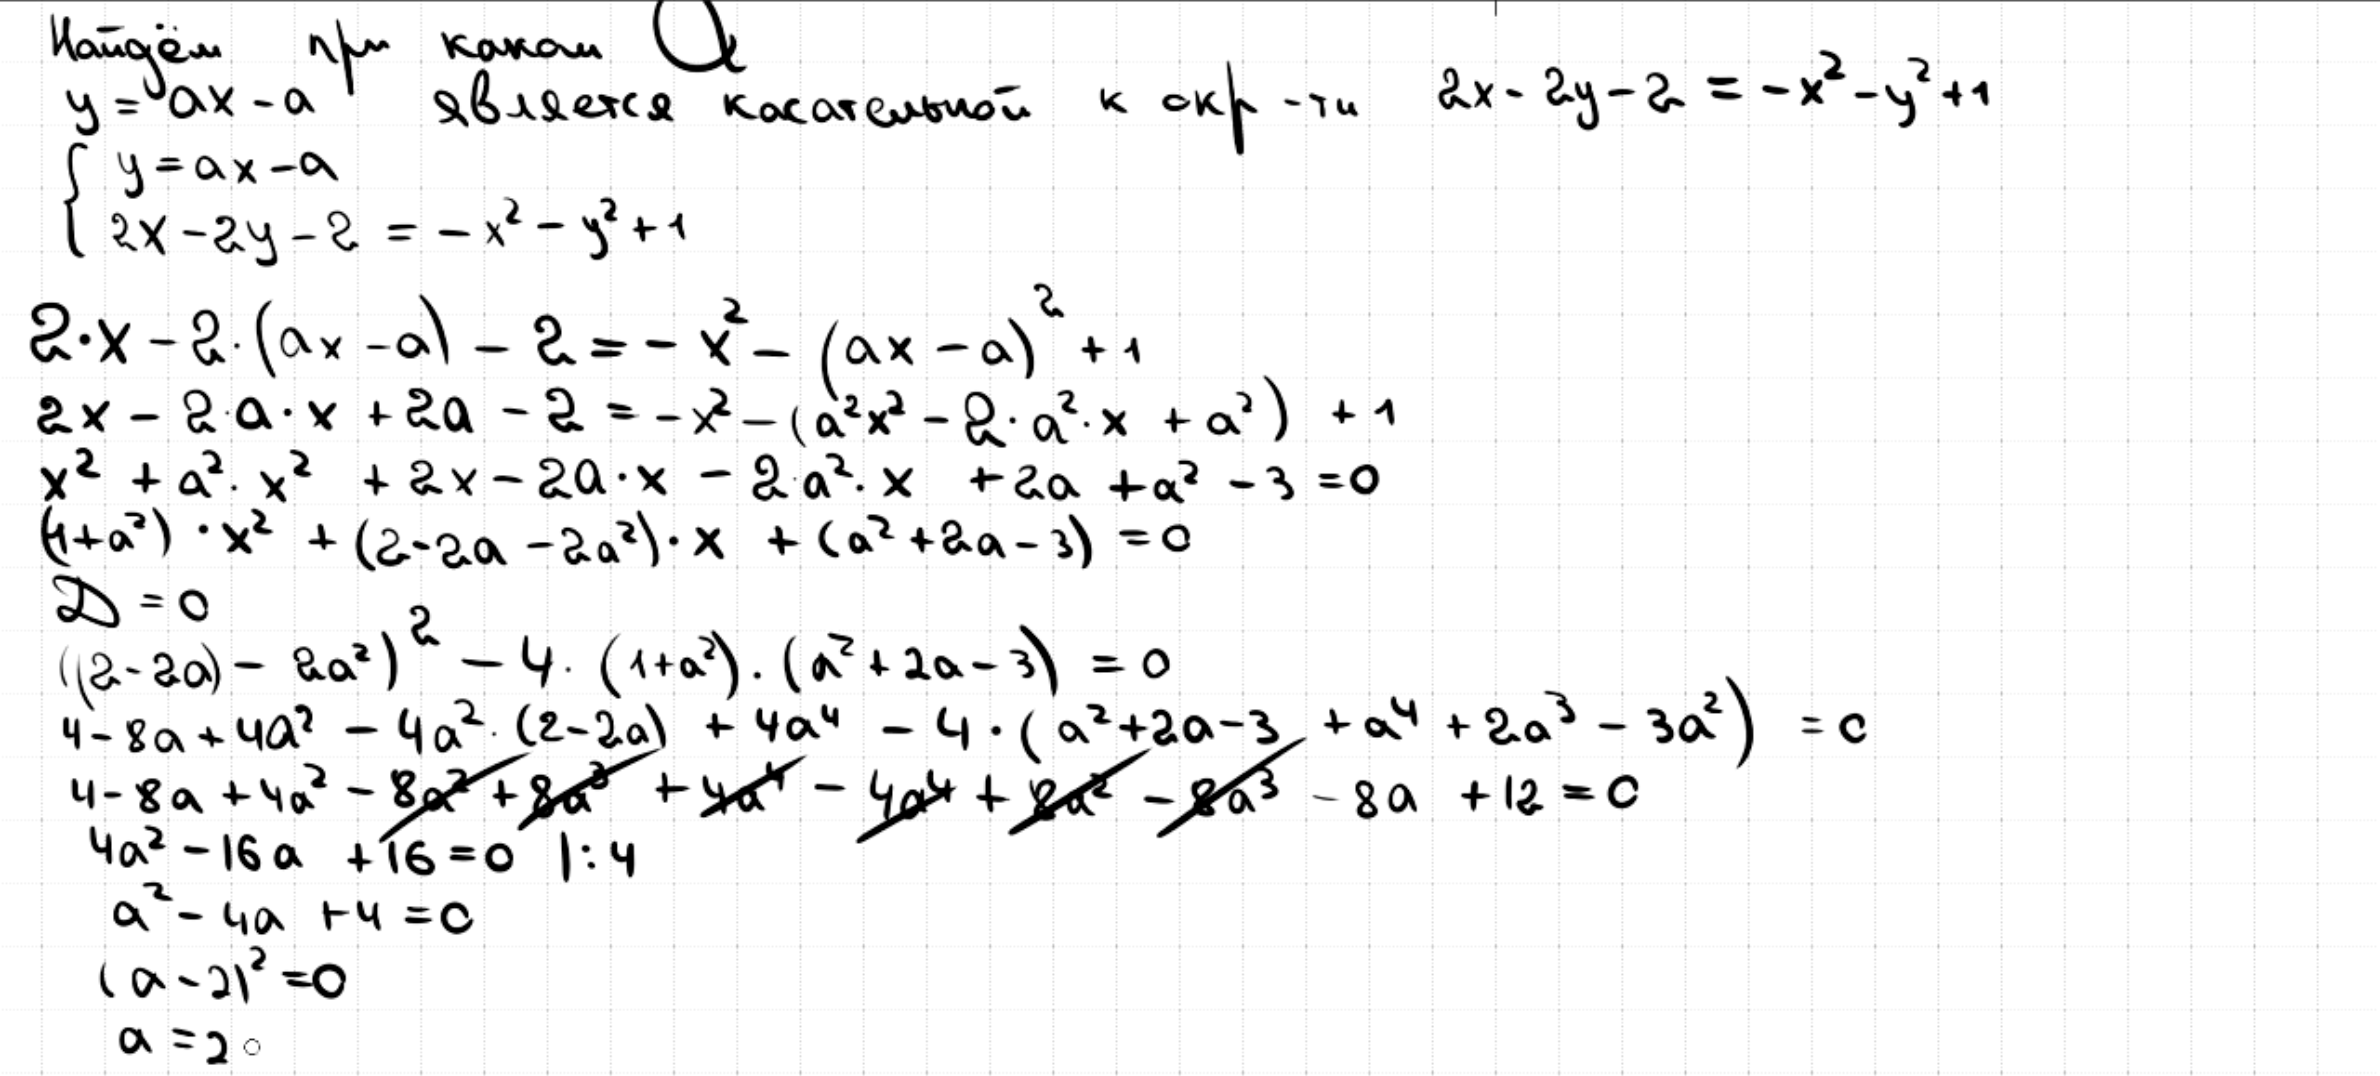 Найдём при каком a
y = ax - a является касательной к окр-ти 2x - 2y - 2 = -x² - y² + 1
{ y = ax - a
2x - 2y - 2 = -x² - y² + 1
2·x - 2·(ax - a) - 2 = -x² - (ax - a)² + 1
2x - 2·a·x + 2a - 2 = -x² - (a²x² - 2·a²·x + a²) + 1
x² + a²·x² + 2x - 2a·x - 2·a²·x + 2a + a² - 3 = 0
(1+a²)·x² + (2-2a-2a²)·x + (a²+2a-3) = 0
D = 0
((2-2a) - 2a²)² - 4·(1+a²)·(a²+2a-3) = 0
4 - 8a + 4a² - 4a²·(2-2a) + 4a⁴ - 4·(a²+2a-3 + a⁴ + 2a³ - 3a²) = 0
4 - 8a + 4a² - 8a² + 8a³ + 4a⁴ - 4a⁴ + 8a² - 8a³ - 8a + 12 = 0
4a² - 16a + 16 = 0 |:4
a² - 4a + 4 = 0
(a - 2)² = 0
a = 2